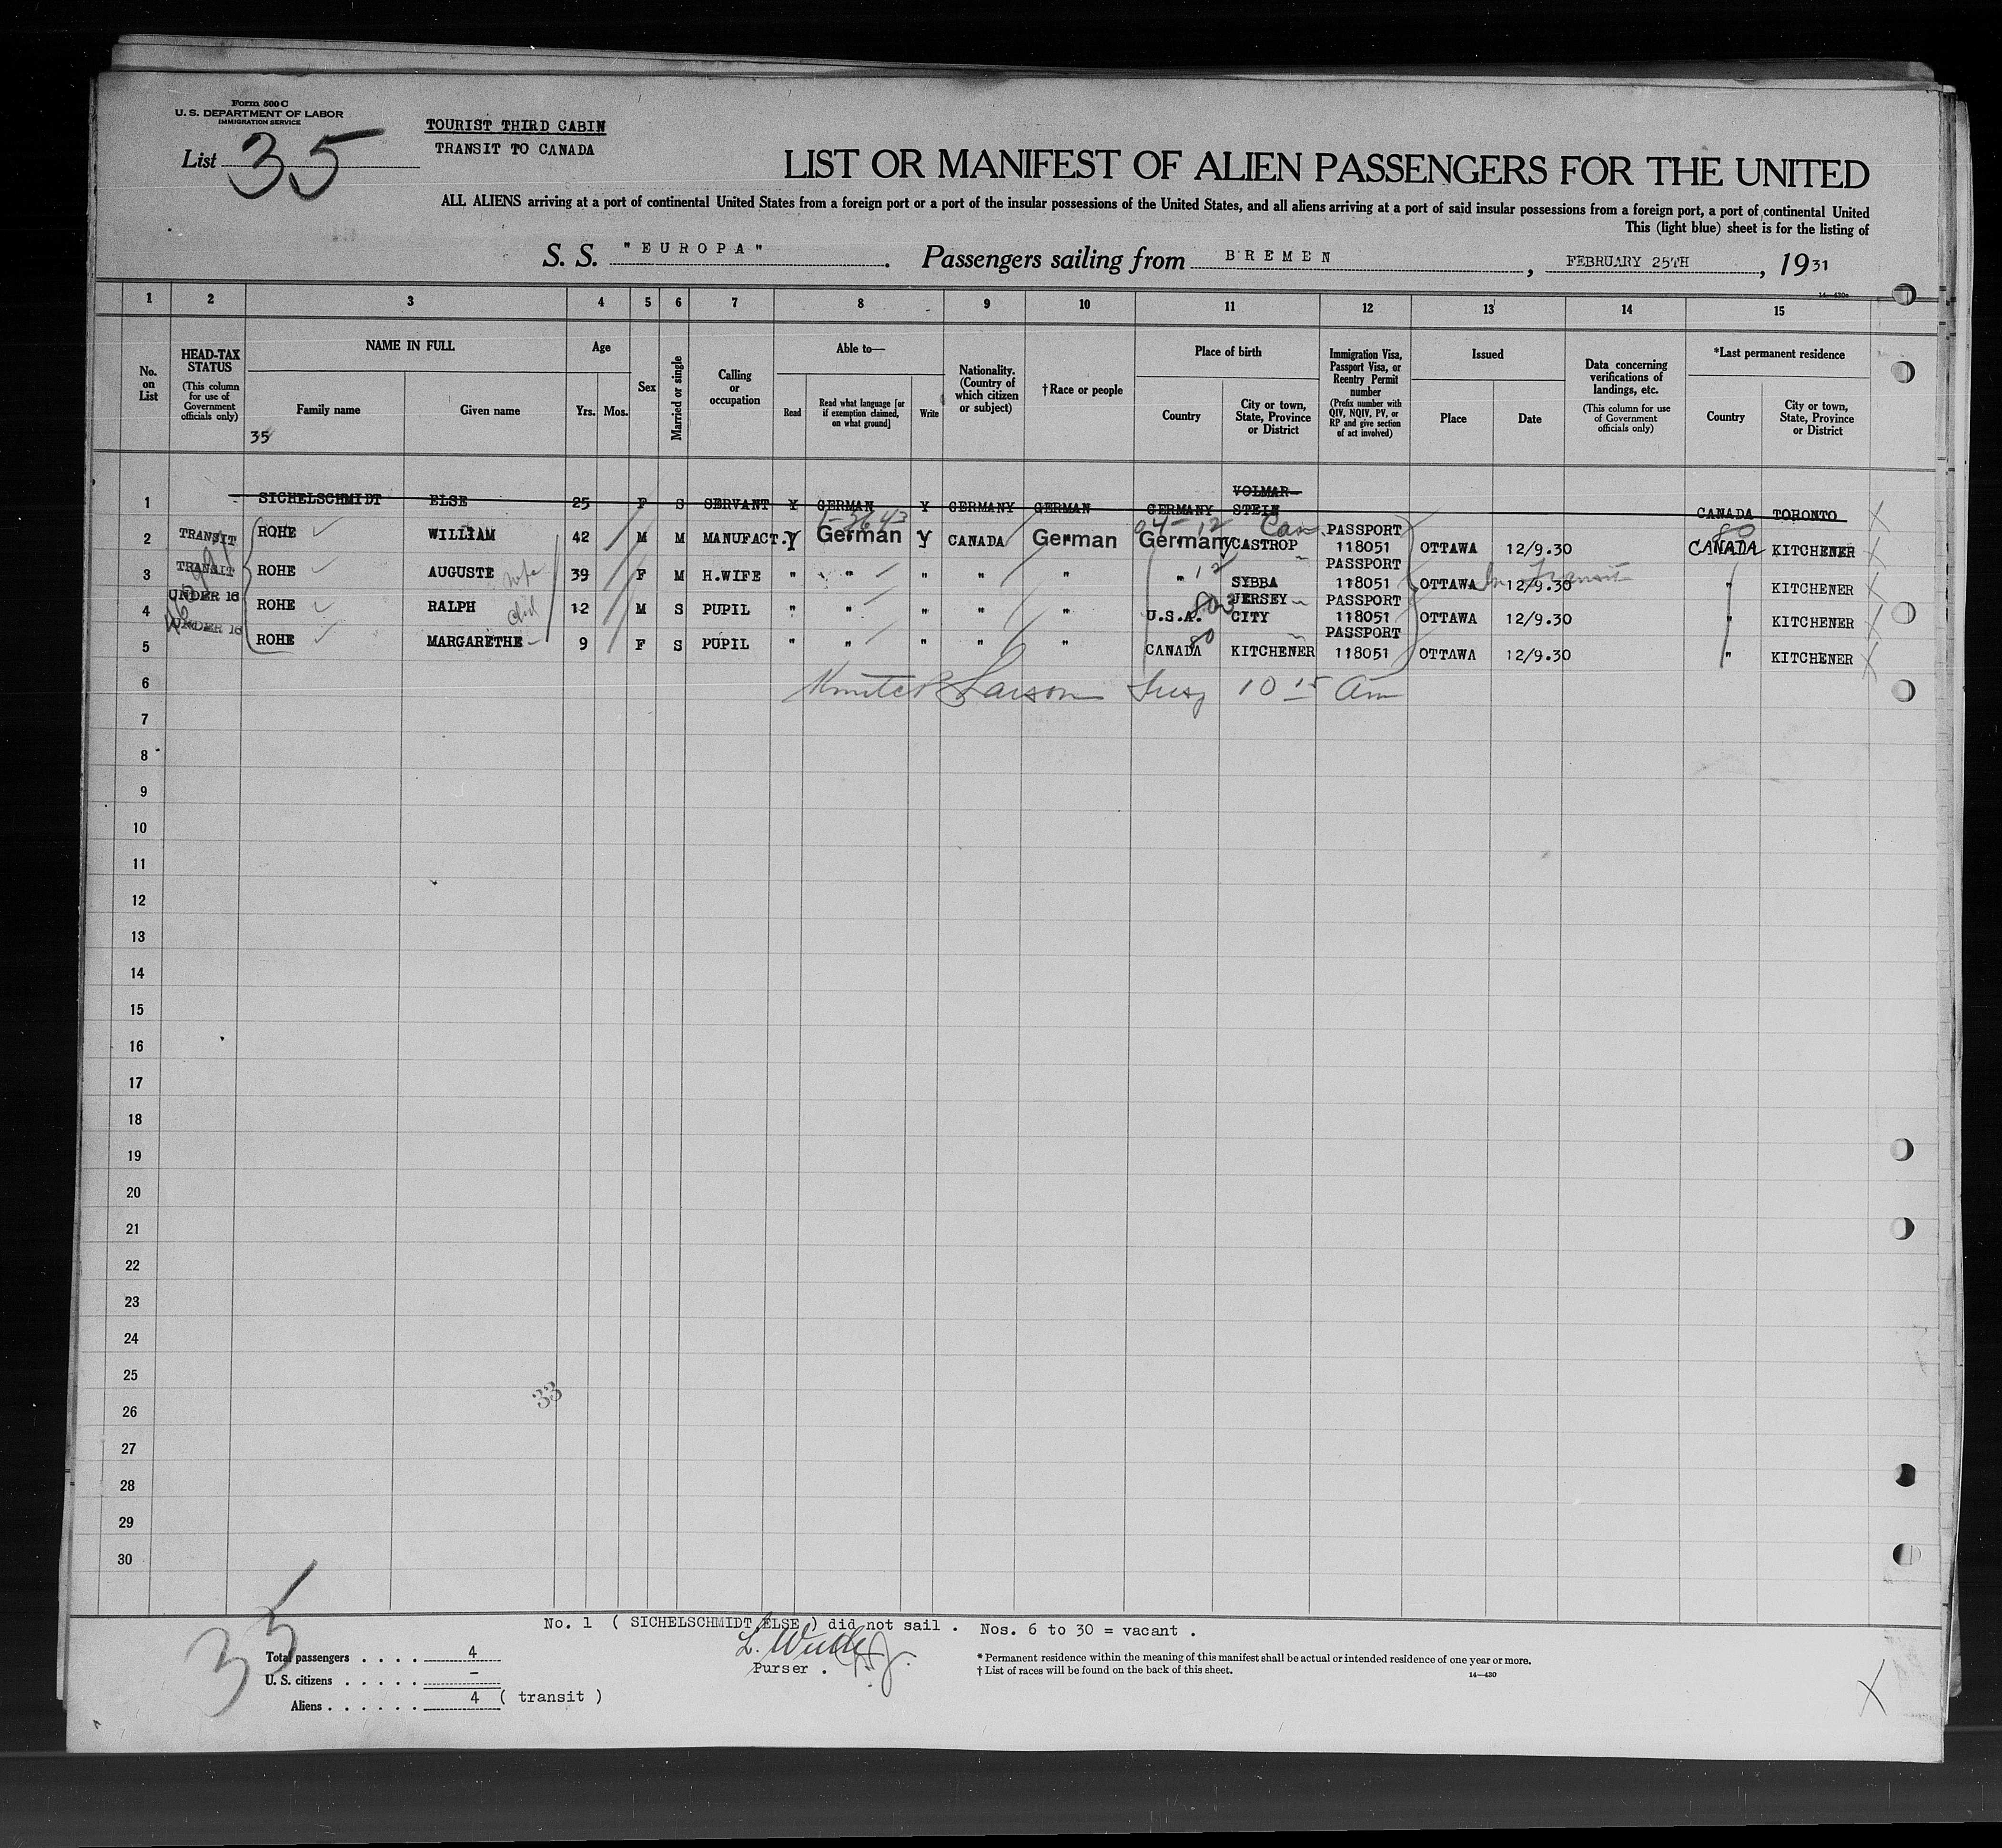 Form 500 C
U. S. DEPARTMENT OF LABOR
IMMIGRATION SERVICE
List 35
TOURIST THIRD CABIN
TRANSIT TO CANADA
LIST OR MANIFEST OF ALIEN PASSENGERS FOR THE UNITED
ALL ALIENS arriving at a port of continental United States from a foreign port or a port of the insular possessions of the United States, and all aliens arriving at a port of said insular possessions from a foreign port, a port of continental United
This (light blue) sheet is for the listing of
S. S. "EUROPA". Passengers sailing from BREMEN, FEBRUARY 25TH, 1931
14—430a
1 2 3 4 5 6 7 8 9 10 11 12 13 14 15
No. on List
HEAD-TAX STATUS (This column for use of Government officials only)
NAME IN FULL
Family name
Given name
35
Age
Yrs. Mos.
Sex
Married or single
Calling or occupation
Able to—
Read
Read what language [or if exemption claimed, on what ground]
Write
Nationality. (Country of which citizen or subject)
†Race or people
Place of birth
Country
City or town, State, Province or District
Immigration Visa, Passport Visa, or Reentry Permit number (Prefix number with QIV, NQIV, PV, or RP and give section of act involved)
Issued
Place
Date
Data concerning verifications of landings, etc. (This column for use of Government officials only)
*Last permanent residence
Country
City or town, State, Province or District
1 SICHELSCHMIDT ELSE 25 F S SERVANT Y GERMAN Y GERMANY GERMAN GERMANY VOLMAR-STEIN CANADA TORONTO
2 TRANSIT ROHE WILLIAM 42 M M MANUFACT. Y German Y CANADA German Germany CASTROP PASSPORT 118051 OTTAWA 12/9.30 CANADA KITCHENER
3 TRANSIT ROHE AUGUSTE wife 39 F M H.WIFE " " " " " " SYBBA PASSPORT 118051 OTTAWA 12/9.30 In Transit " KITCHENER
4 UNDER 16 ROHE RALPH child 12 M S PUPIL " " " " " U.S.A. JERSEY CITY PASSPORT 118051 OTTAWA 12/9.30 " KITCHENER
5 UNDER 16 ROHE MARGARETHE 9 F S PUPIL " " " " " CANADA KITCHENER PASSPORT 118051 OTTAWA 12/9.30 " KITCHENER
6 Larson 10 15 Am
7
8
9
10
11
12
13
14
15
16
17
18
19
20
21
22
23
24
25
33
26
27
28
29
30
35
No. 1 ( SICHELSCHMIDT ELSE ) did not sail . Nos. 6 to 30 = vacant .
Total passengers . . . . 4
U. S. citizens . . . . . –
Aliens . . . . . . 4 ( transit )
Purser .
* Permanent residence within the meaning of this manifest shall be actual or intended residence of one year or more.
† List of races will be found on the back of this sheet.
14—430